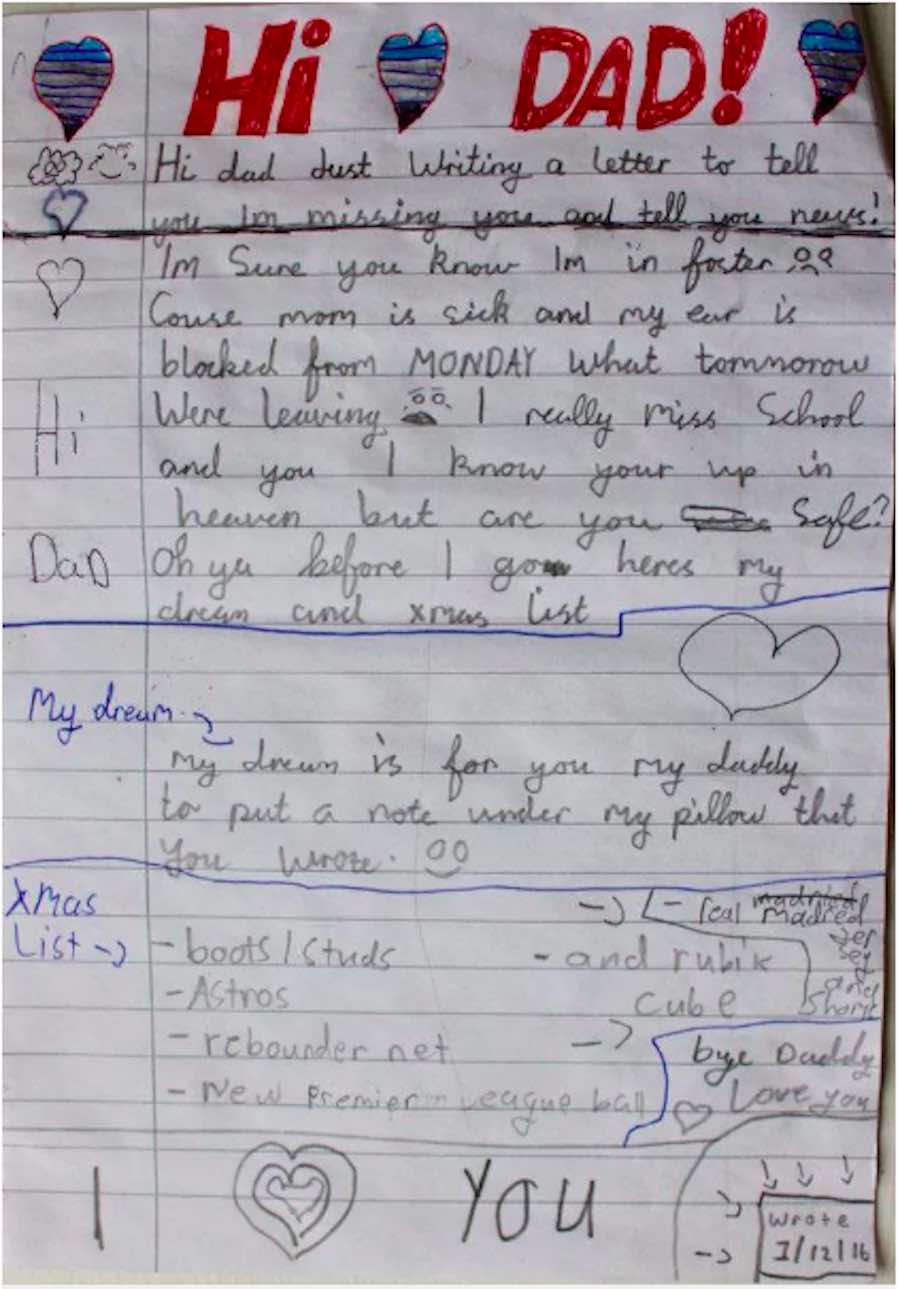 Hi DAD!
Hi dad Just Writing a letter to tell
you Im missing you and tell you news!
Im Sure you know Im in foster
Couse mom is sick and my ear is
blocked from MONDAY What tommorow
Were leaving I really miss School
Hi
and you I know your up in
heaven but are you Safe?
Dad
Oh ya before I go heres my
dream and xmas list
My dream
My dream is for you my daddy
to put a note under my pillow that
You wrote.
Xmas
List
- boots/studs
- Astros
- rebounder net
- New Premier League ball
- real madried
Madred
Jer
sey
and
Shorts
- and rubik
Cube
bye Daddy
Love you
I You
Wrote
1/12/16